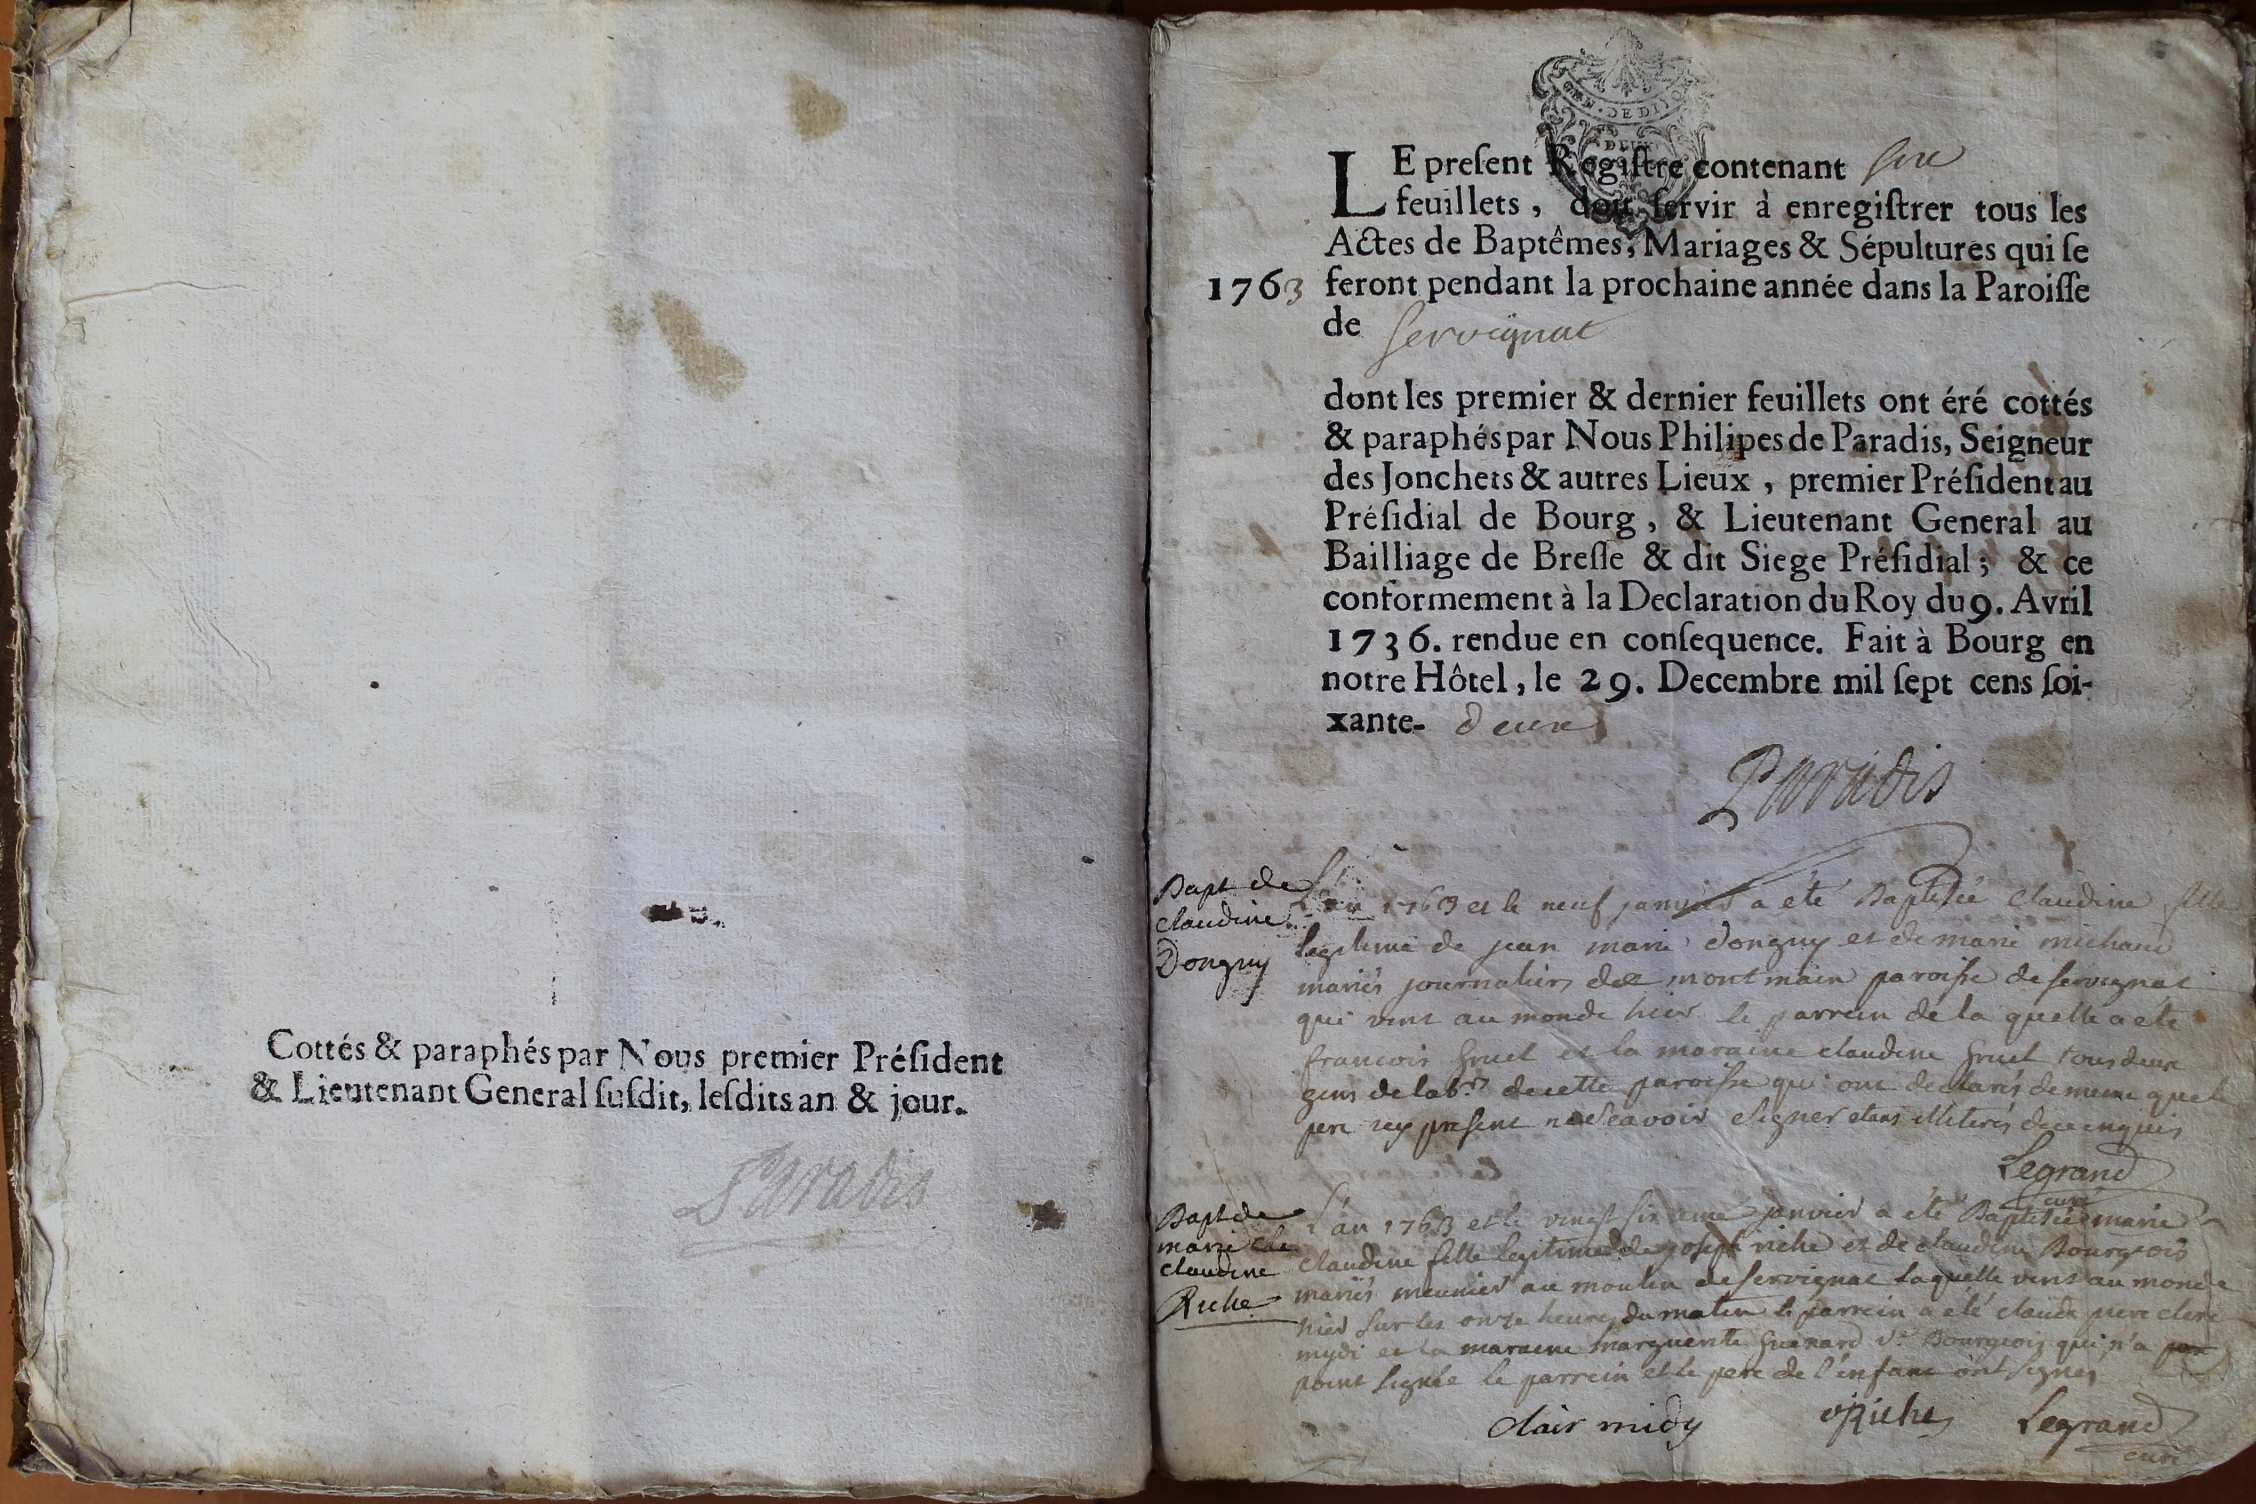 Cottés & paraphés par Nous premier Président
& Lieutenant General susdit, lesdits an & jour.
Paradis
GEN. DE DIJON
DEUX
LE present Registre contenant six
feuillets, doit servir à enregistrer tous les
Actes de Baptêmes, Mariages & Sépultures qui se
1763 feront pendant la prochaine année dans la Paroisse
de Servignat
dont les premier & dernier feuillets ont éré cottés
& paraphés par Nous Philipes de Paradis, Seigneur
des Jonchets & autres Lieux, premier Président au
Présidial de Bourg, & Lieutenant General au
Bailliage de Bresse & dit Siege Présidial; & ce
conformement à la Declaration du Roy du 9. Avril
1736. rendue en consequence. Fait à Bourg en
notre Hôtel, le 29. Decembre mil sept cens soi-
xante- deux
Paradis
Bapt de
claudine
Donguy
L'an 1763 et le neuf janvier a été Baptisée claudine fille
legitime de jean marie donguy et de marie michaud
mariés journaliers de montmain paroisse de servignat
qui vint au monde hier le parrein de la quelle a eté
francois gruel et la maraine claudine gruel tous deux
gens de labr. de cette paroisse qui ont declarés de meme que le
pere icy present ne scavoir signer etans illiterés de ce enquis
Legrand
curé
Bapt de
marie
claudine
Riche
L'an 1763 et le vingt sixieme janvier a été Baptisée marie
claudine fille legitime de joseph riche et de claudine Bourgeois
mariés meunier au moulin de servignat laquelle vint au monde
hier sur les onze heures du matin le parrein a été claude clere
mydi et la maraine marguerite guenard ve. Bourgeois qui n'a
point signée le parrein et le pere de l'enfant ont signes
clair midy
Riche
Legrand
curé